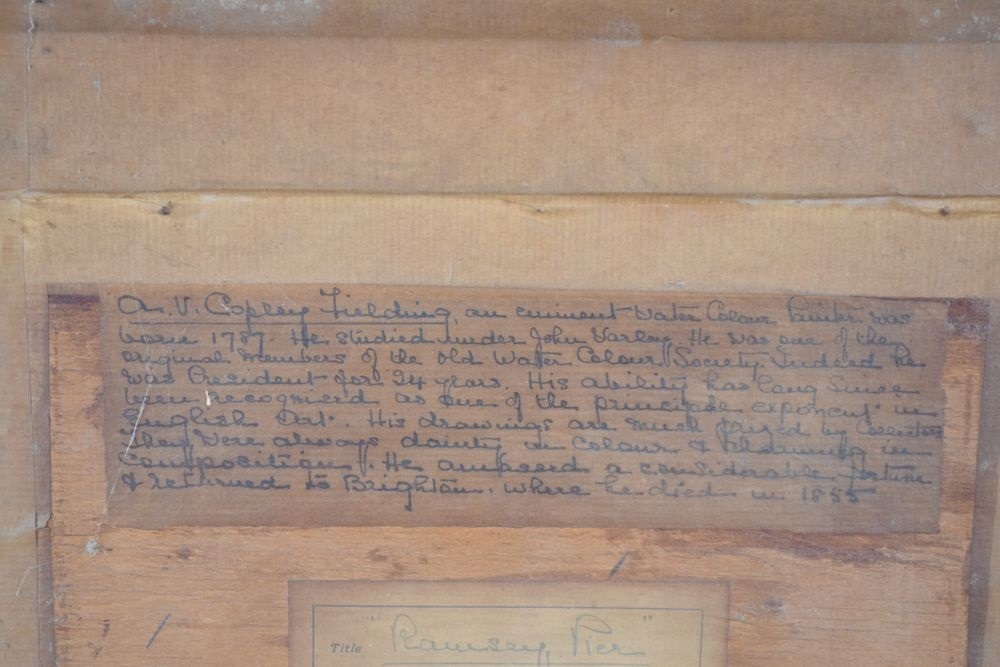 A. V. Copley Fielding, an eminent Water Colour Painter was
born 1787. He studied under John Varley. He was one of the
original members of the Old Water Colour Society. Indeed he
was President for 24 years. His ability has long since
been recognised as one of the principle exponent in
English Art. His drawings are much prized by
They were always dainty in colour & charming in
Composition. He amassed a considerable fortune
& returned to Brighton, where he died in 1855
Title "Ramsey Pier"